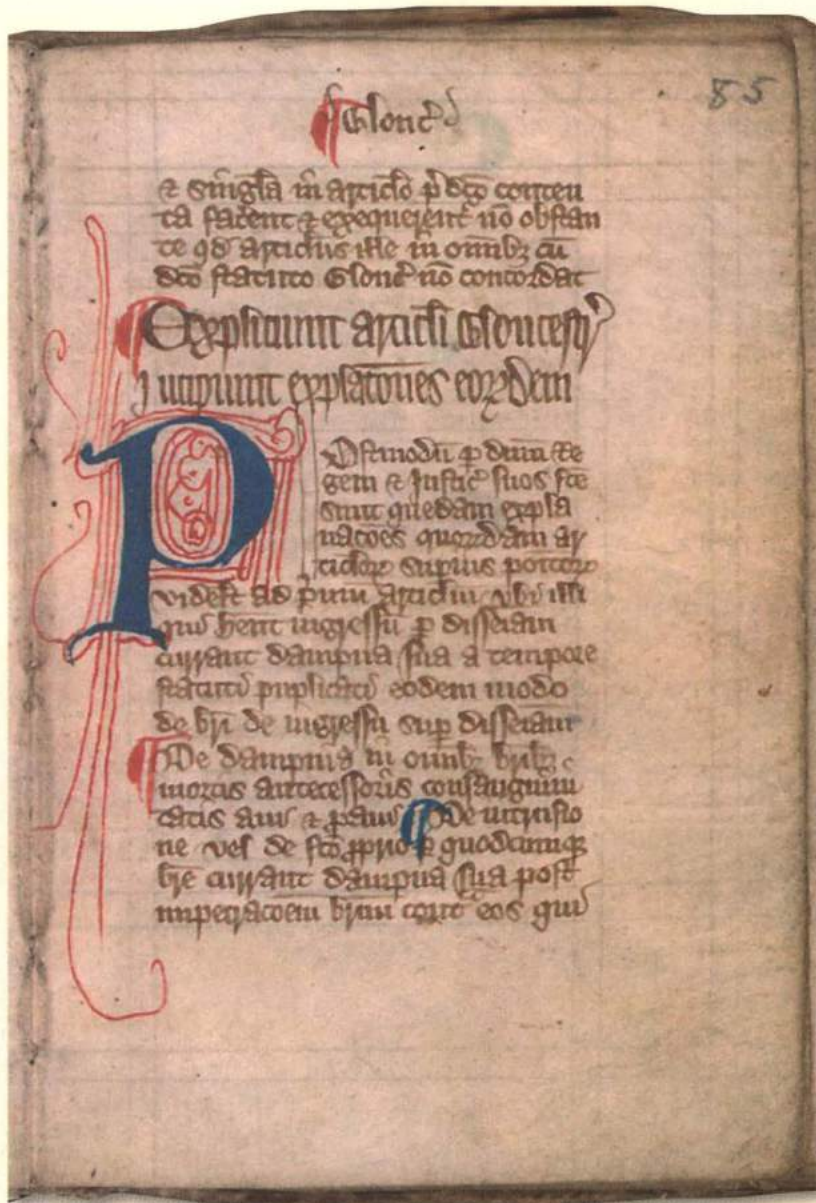 85
Glouc̉
& singl̃a in artic̉lo p̃dc̃o conten
ta facẽnt & exequẽrent̃ nõ obstan
te qd̃ artic̃lus ille in om̃ibꝫ cũ
dc̃o statuto Glouc̉ nõ concordat
Expliciunt artic̃li Gloucestr̉
Incipiunt expl̃ac̃ones eoꝝdem
Postmodũ ꝑ dñm Re
gem & Justic̉ suos fc̃e
sunt quedam expla
nac̃ões quoꝝdam ar
tic̃loꝝ supius
videlt̃ ad p̃mũ artic̃lm vbi illi
qui hent ingressũ ꝑ disseiam
currant dampna sua a tempore
statuti puplicati eodem modo
de br̃i de ingressu suꝑ disseiam
De dampnis in om̃ibꝫ br̃ibꝫ
mortis antecessoris consanguini
tatis aui & ꝓaui De intrusio
ne vel de fc̃o ꝓprio ꝑ quodcumqꝫ
br̃e currant dampna sua post
impetrac̃oem br̃ium eos qui